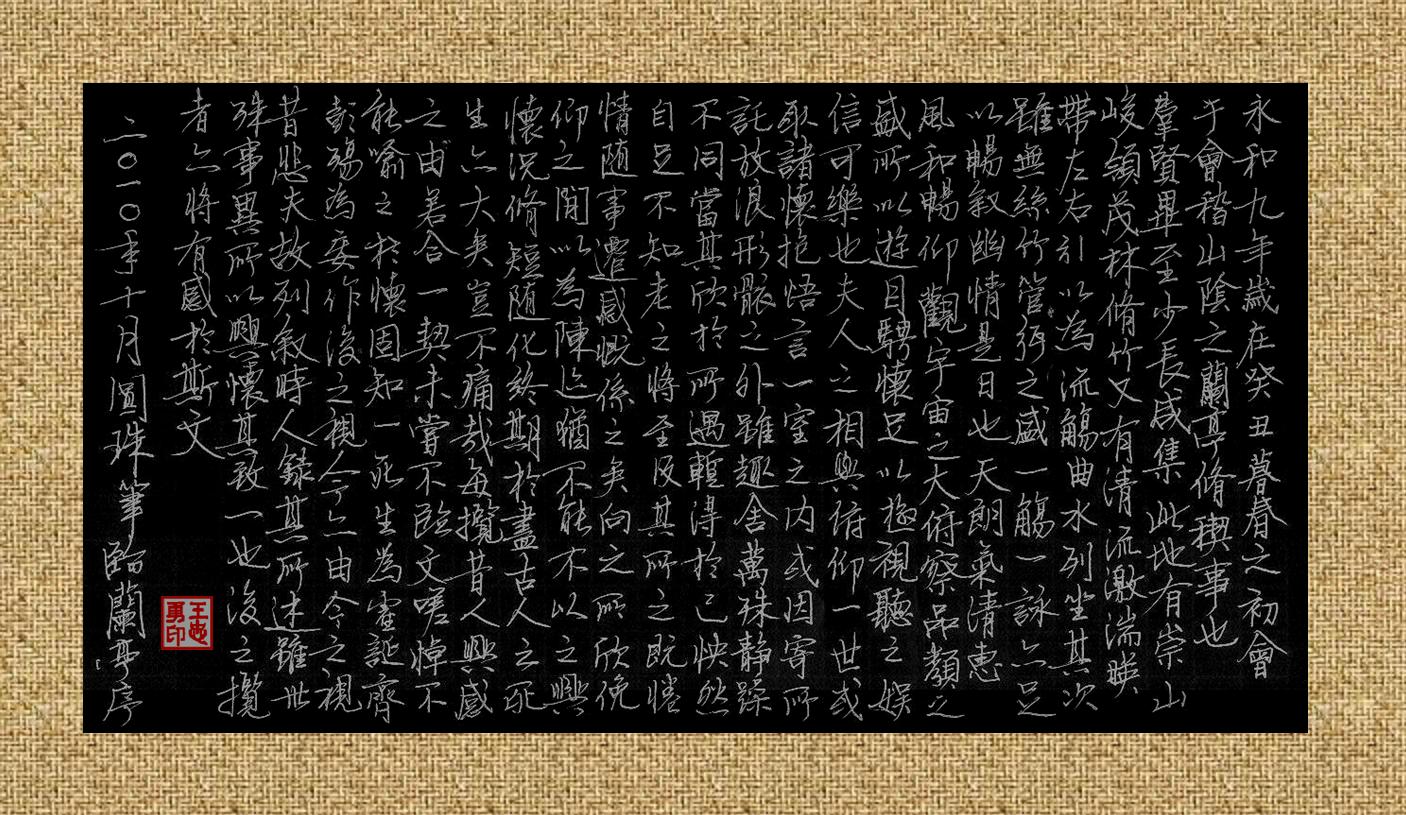 永和九年歲在癸丑暮春之初會
于會稽山陰之蘭亭脩稧事也
羣賢畢至少長咸集此地有崇山
峻領茂林脩竹又有清流激湍暎
帶左右引以為流觴曲水列坐其次
雖無絲竹管弦之盛一觴一詠亦足
以暢敘幽情是日也天朗氣清惠
風和暢仰觀宇宙之大俯察品類之
盛所以遊目騁懷足以極視聽之娛
信可樂也夫人之相與俯仰一世或
取諸懷抱悟言一室之內或因寄所
託放浪形骸之外雖趣舍萬殊靜躁
不同當其欣於所遇蹔得於己怏然
自足不知老之將至及其所之既惓
情隨事遷感慨係之矣向之所欣俛
仰之間以為陳迹猶不能不以之興
懷況脩短隨化終期於盡古人之死
生亦大矣豈不痛哉每攬昔人興感
之由若合一契未嘗不臨文嗟悼不
能喻之於懷固知一死生為虛誕齊
彭殤為妄作後之視今亦由今之視
昔悲夫故列敘時人錄其所述雖世
殊事異所以興懷其致一也後之攬
者亦將有感於斯文
二〇一〇年十月圓珠筆臨蘭亭序
王志勇印